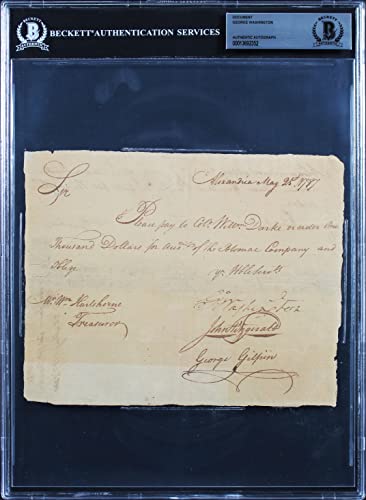 BECKETT® AUTHENTICATION SERVICES
DOCUMENT
GEORGE WASHINGTON
AUTHENTIC AUTOGRAPH
Alexandria May 25th 1787
Sir
Please pay to Colo. Willm. Darke or order One
Thousand Dollars for Acct. of the Potomac Company and
Oblige
Go Washington
Mr. Wm. Hartshorne
Treasurer
John Fitzgerald
George Gilpin